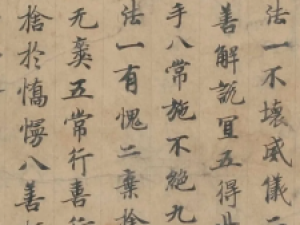 法一不壞威儀二
善解說冝五得
手八常施不絕九
法一有愧二棄捨
无棄五常行喜行
捨於憍慢八善